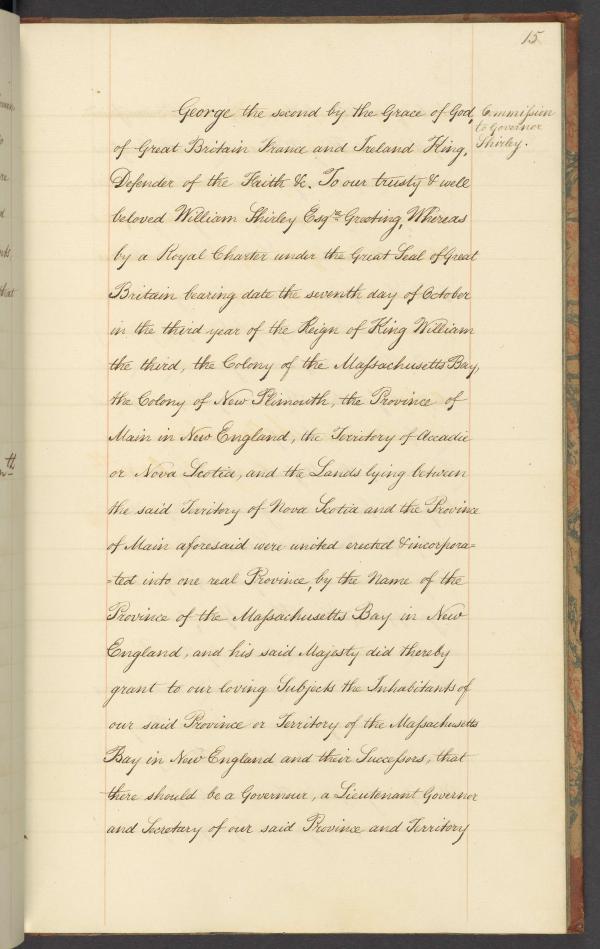 15
George the second by the Grace of God,
Commission
to Governor
Shirley.
of Great Britain France and Ireland King,
Defender of the Faith &c. To our trusty & well
beloved William Shirley Esqre Greeting, Whereas
by a Royal Charter under the Great Seal of Great
Britain bearing date the seventh day of October
in the third year of the Reign of King William
the third, the Colony of the Massachusetts Bay,
the Colony of New Plimouth, the Province of
Main in New England, the Territory of Accadie
or Nova Scotia, and the Lands lying between
the said Territory of Nova Scotia and the Province
of Main aforesaid were united erected & incorpora=
=ted into one real Province, by the Name of the
Province of the Massachusetts Bay in New
England, and his said Majesty did thereby
grant to our loving Subjects the Inhabitants of
our said Province or Territory of the Massachusetts
Bay in New England and their Successors, that
there should be a Governour, a Lieutenant Governor
and Secretary of our said Province and Territory